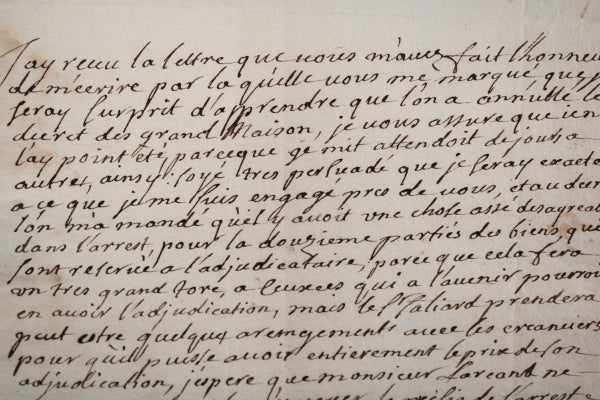 J'ay receu la lettre que vous m'avez fait l'honneur
de m'ecrire par la quelle vous me marqué, que je
seray surprit d'apprendre que l'on a annullé le
decret des grand Maison, je vous assure que je n
l'ay point été, parceque je m'it attendoit de jours a
autres, ainsy soyé tres persuadé que je seray exacte
a ce que je me suis engagé pres de vous, et au
l'on m'a mandé qu'el y avoit une chose assé desagrea
dans l'arrest, pour la douzieme parties des biens, que
sont reservé a l'adjudicataire, parce que cela fera
un tres grand tore, a ceuxcee qui a l'avenir pourron
en avoir l'adjudication, mais le Sr Taliard prendera
peut estre quelques arengements avec les creanciers
pour qu'il puisse avoir entierement le prix de son
adjudication, j'espere que monsieur Lareant ne
de l'arrest